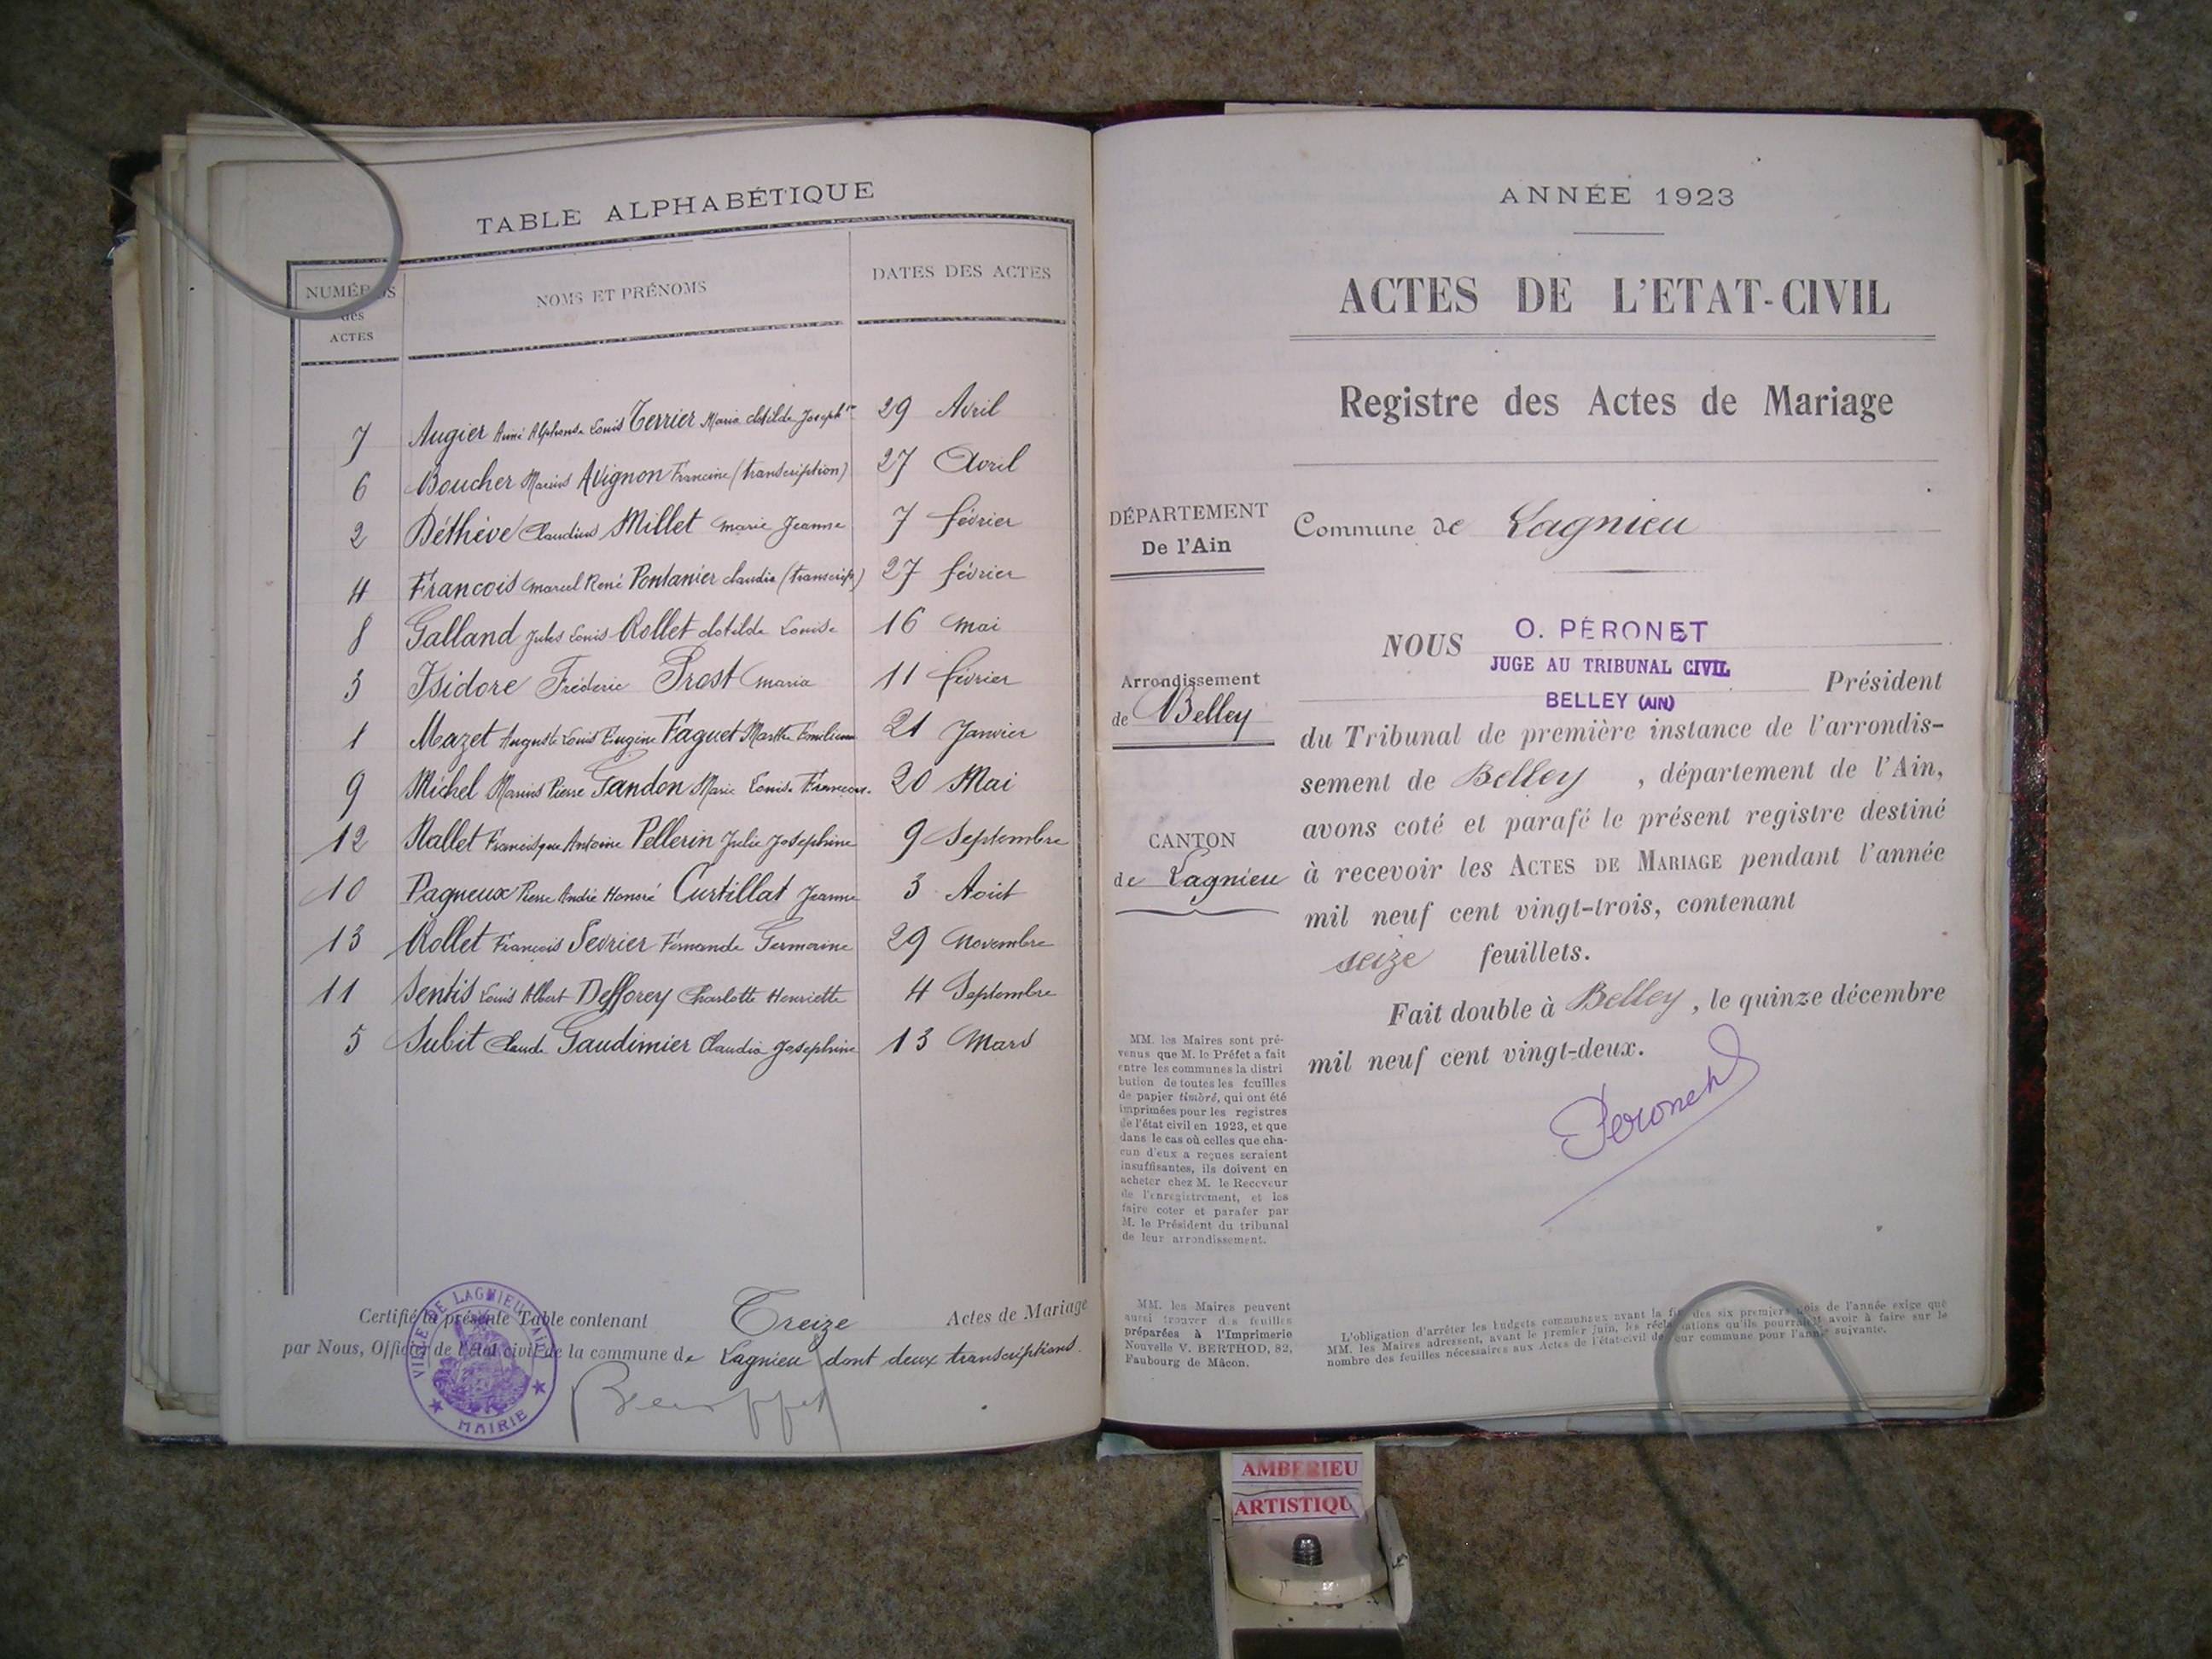 TABLE ALPHABÉTIQUE
NUMÉROS
des
ACTES
NOMS ET PRÉNOMS
DATES DES ACTES
7 Augier Aimé Alphonse Louis Terrier Marie Clotilde Josephne 29 Avril
6 Boucher Marius Avignon Francine (transcription) 27 Avril
2 Déthève Claudius Millet Marie Jeanne 7 février
4 Francois Marcel René Pontanier Claudia (transcript) 27 février
8 Galland Jules Louis Rollet Clotilde Louise 16 Mai
3 Isidore Fréderic Prost Maria 11 février
1 Mazet Auguste Louis Eugène Faguet Marthe Emilienne 21 Janvier
9 Michel Marius Pierre Gandon Marie Louise 20 Mai
12 Nallet Francisque Antoine Pellerin Julie Josephine 9 Septembre
10 Pagneux Pierre André Honoré Curtillat Jeanne 3 Aout
13 Rollet Francois Sevrier Fernande Germaine 29 Novembre
11 Sentis Louis Albert Defforey Charlotte Henriette 4 Septembre
5 Subit Claude Gaudimier Claudia Josephine 13 Mars
Certifié la présente Table contenant Treize Actes de Mariage
par Nous, Officier de l'état civil de la commune de Lagnieu dont deux transcriptions.
VILLE DE LAGNIEU (AIN)
★ MAIRIE ★
ANNÉE 1923
ACTES DE L'ETAT-CIVIL
Registre des Actes de Mariage
DÉPARTEMENT
De l'Ain
Arrondissement
de Belley
CANTON
de Lagnieu
MM. les Maires sont pré-
venus que M. le Préfet a fait
entre les communes la distri
bution de toutes les feuilles
de papier timbré, qui ont été
imprimées pour les registres
de l'état civil en 1923, et que
dans le cas où celles que cha-
cun d'eux a reçues seraient
insuffisantes, ils doivent en
acheter chez M. le Receveur
de l'enregistrement, et les
faire coter et parafer par
M. le Président du tribunal
de leur arrondissement.
MM. les Maires peuvent
aussi trouver des feuilles
préparées à l'Imprimerie
Nouvelle V. BERTHOD, 82,
Faubourg de Mâcon.
Commune de Lagnieu
NOUS O. PÉRONET
JUGE AU TRIBUNAL CIVIL
BELLEY (AIN)
Président
du Tribunal de première instance de l'arrondis-
sement de Belley, département de l'Ain,
avons coté et parafé le présent registre destiné
à recevoir les ACTES DE MARIAGE pendant l'année
mil neuf cent vingt-trois, contenant
seize feuillets.
Fait double à Belley, le quinze décembre
mil neuf cent vingt-deux.
Péronet
L'obligation d'arrêter les budgets communaux avant la fin des six premiers mois de l'année exige que
MM. les Maires adressent, avant le premier juin, les réclamations qu'ils pourraient avoir à faire sur le
nombre des feuilles nécessaires aux Actes de l'état civil de leur commune pour l'année suivante.
AMBERIEU
ARTISTIQU